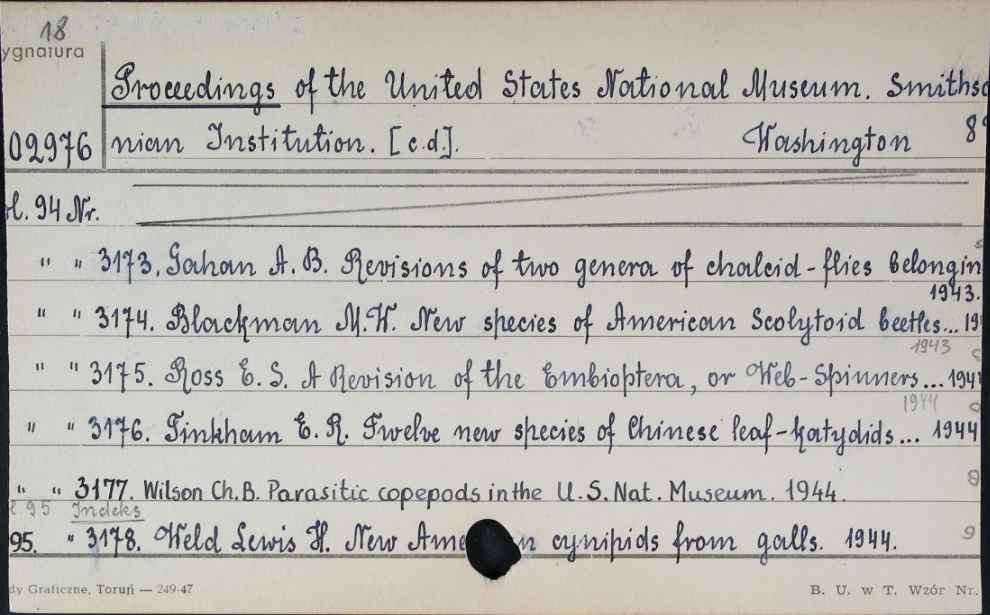 18
ygnatura
Proceedings of the United States National Museum. Smithso
02976 nian Institution. [c.d.]. Washington 89
l. 94 Nr.
" " 3173. Gahan A. B. Revisions of two genera of chalcid-flies belongin
1943.
" " 3174. Blackman M.W. New species of American Scolytoid beetles... 19
1943
" " 3175. Ross E. S. A Revision of the Embioptera, or Web-Spinners... 194
1944
" " 3176. Tinkham E. R. Twelve new species of Chinese leaf-katydids... 1944
" " 3177. Wilson Ch. B. Parasitic copepods in the U.S. Nat. Museum. 1944.
l. 95 Indeks
95. " 3178. Weld Lewis H. New Ame n cynipids from galls. 1944.
dy Graficzne, Toruń — 249-47 B. U. w T. Wzór Nr.